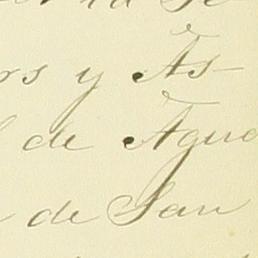 rs y As-
de Agua
de San